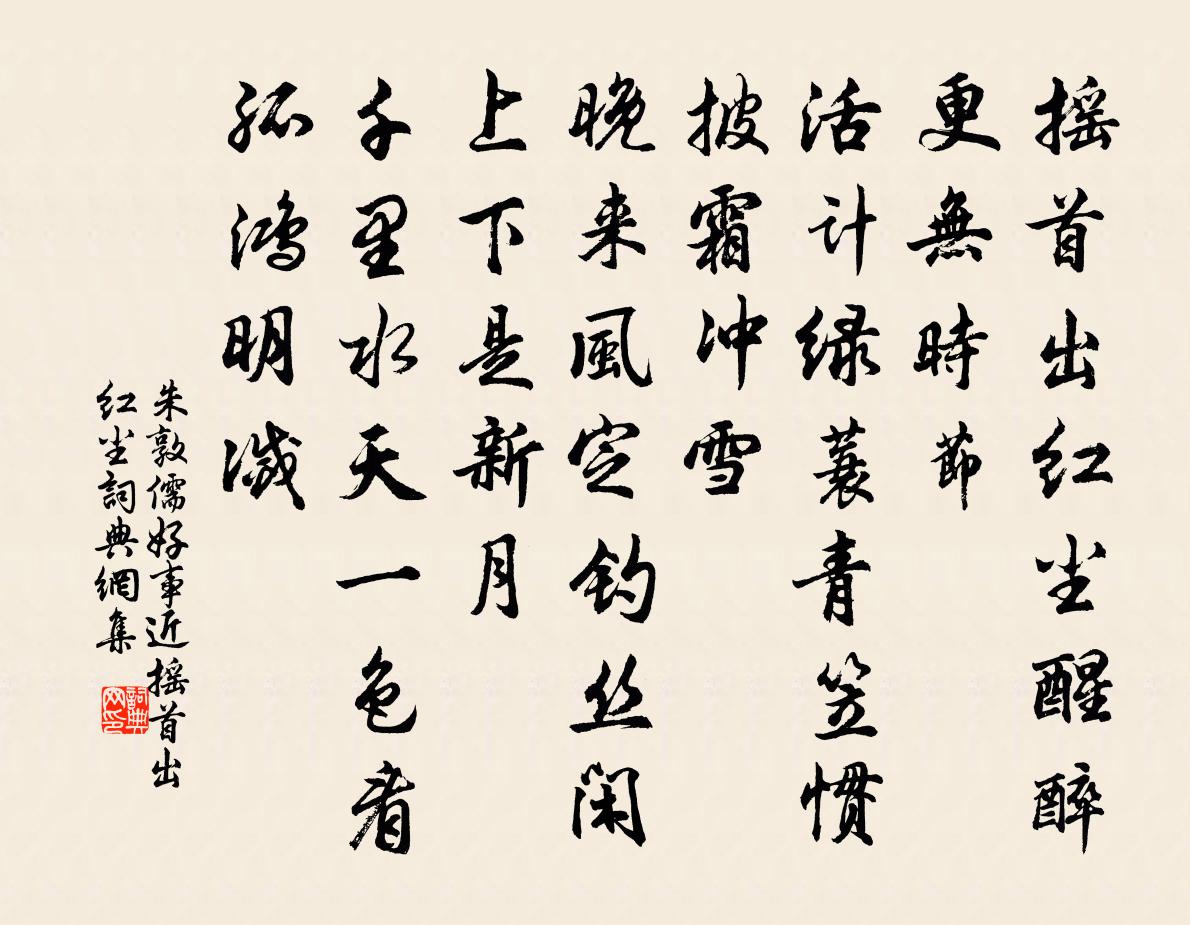 摇首出红尘醒醉
更無時節
活计绿蓑青笠惯
披霜冲雪
晚来風定钓丝闲
上下是新月
千里水天一色看
孤鴻明滅
朱敦儒好事近摇首出
红尘詞典網集
詞典网印